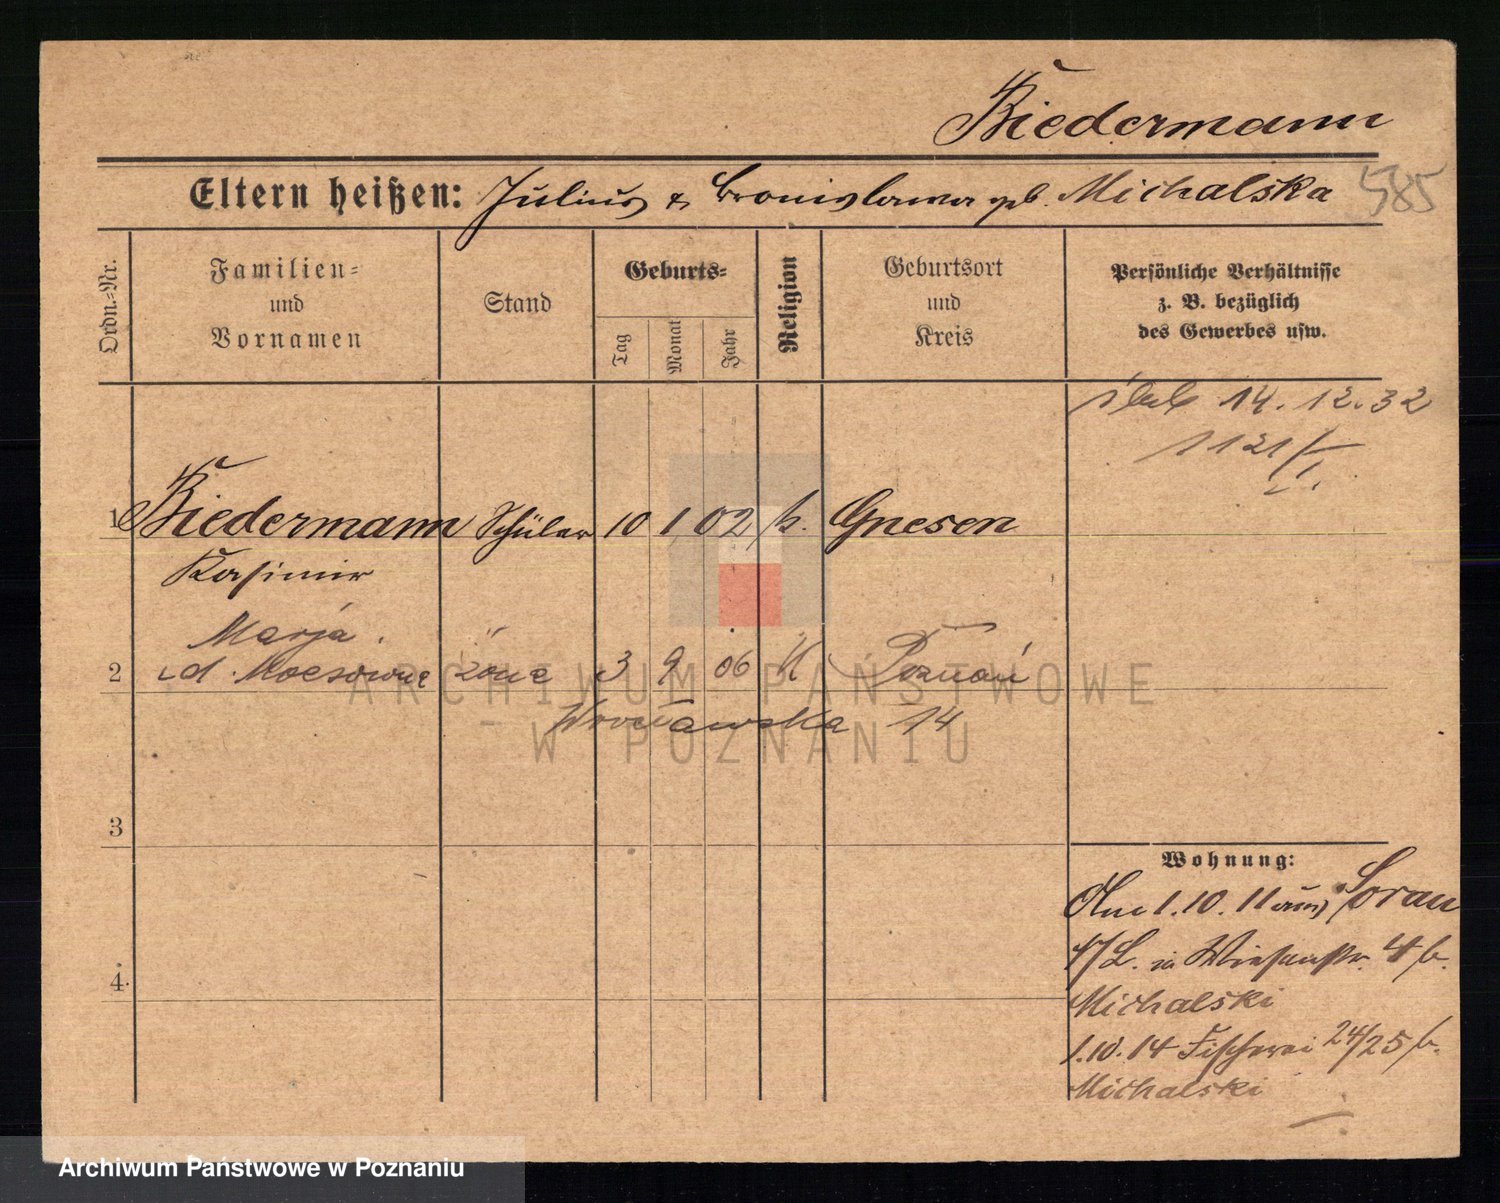 Biedermann
Eltern heißen: Julius & Bronislawa geb. Michalska 585
Ordn.-Nr.
Familien=
und
Vornamen
Stand
Geburts=
Tag
Monat
Jahr
Religion
Geburtsort
und
Kreis
Persönliche Verhältnisse
z. B. bezüglich
des Gewerbes usw.
ślub 14.12.32
1121/
1 Biedermann Schüler 10 1 02 k. Gnesen
Kasimir
Marja
2 d. żona 3 9 06 K Poznań
Wrocławska 14
3
4.
Wohnung:
1.10.11 aus Sorau
N/L. in Wiesenstr. 4 b.
Michalski
1.10.14 Fischerei 24/25 b.
Michalski
ARCHIWUM PAŃSTWOWE
W POZNANIU
Archiwum Państwowe w Poznaniu